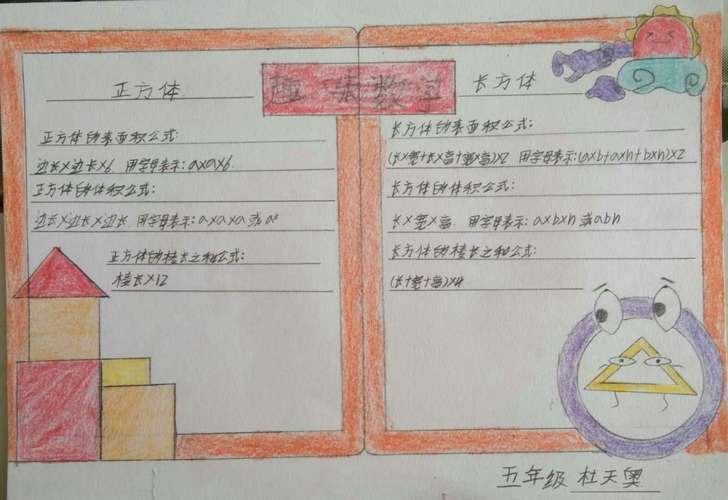 趣味数学
正方体
正方体的表面积公式:
边长×边长×6 用字母表示:a×a×6
正方体的体积公式:
边长×边长×边长 用字母表示:a×a×a 或 a³
正方体的棱长之和公式:
棱长×12
长方体
长方体的表面积公式:
(长×宽+长×高+宽×高)×2 用字母表示:(a×b+a×h+b×h)×2
长方体的体积公式:
长×宽×高 用字母表示:a×b×h 或 abh
长方体的棱长之和公式:
(长+宽+高)×4
五年级 杜天奥